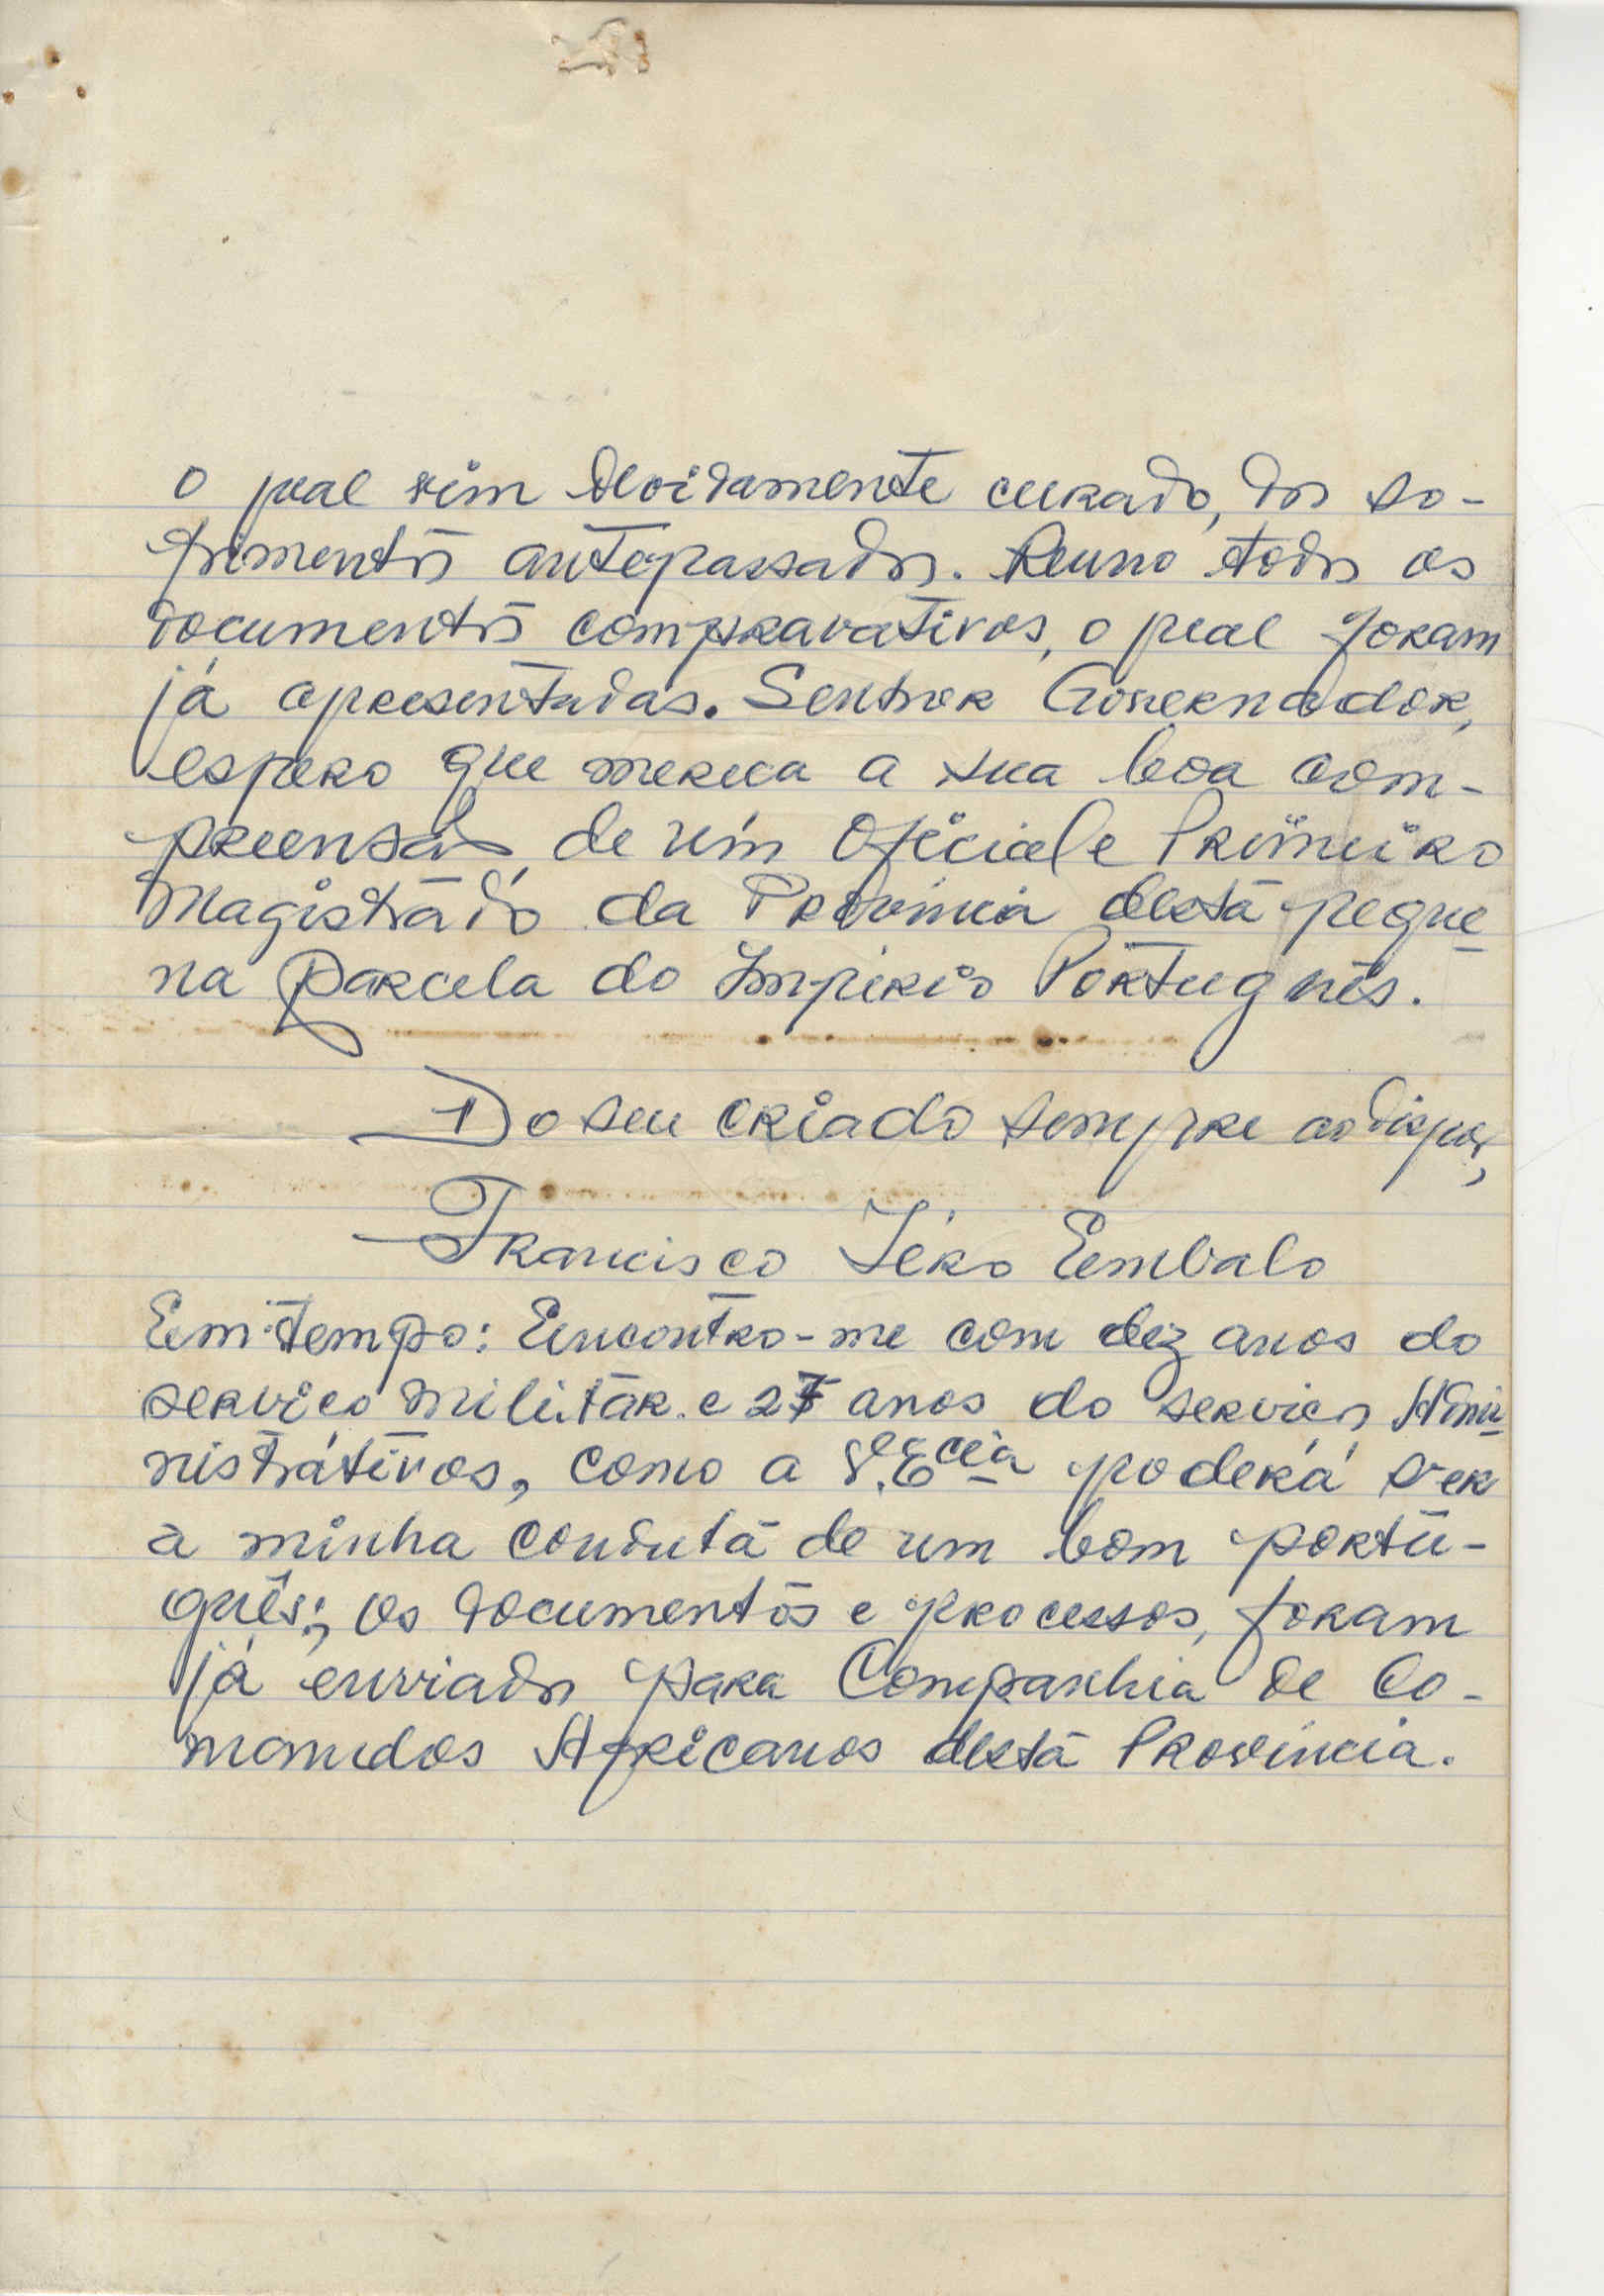 o qual vim devidamente curado, dos so-
frimentos antepassados. Reuno todos os
documentos compravativos, o qual foram
já apresentadas. Senhor Governador,
espero que mereca a sua boa com-
preensão, de um Oficial e Primeiro
Magistrado da Provincia destã peque
na Parcela do Imperio Português.
Do seu criado sempre ao dispor,
Francisco Iéro Embalo
Em tempo: Encontro-me com dez anos do
serviço militar e 27 anos do serviços Admi
nistrátivos, como a V. Ecia poderá ver
a minha condutã de um bom portu-
guês; os documentos e processos, foram
já enviados para Companhia de Co-
mandos Africanos destã Provincia.